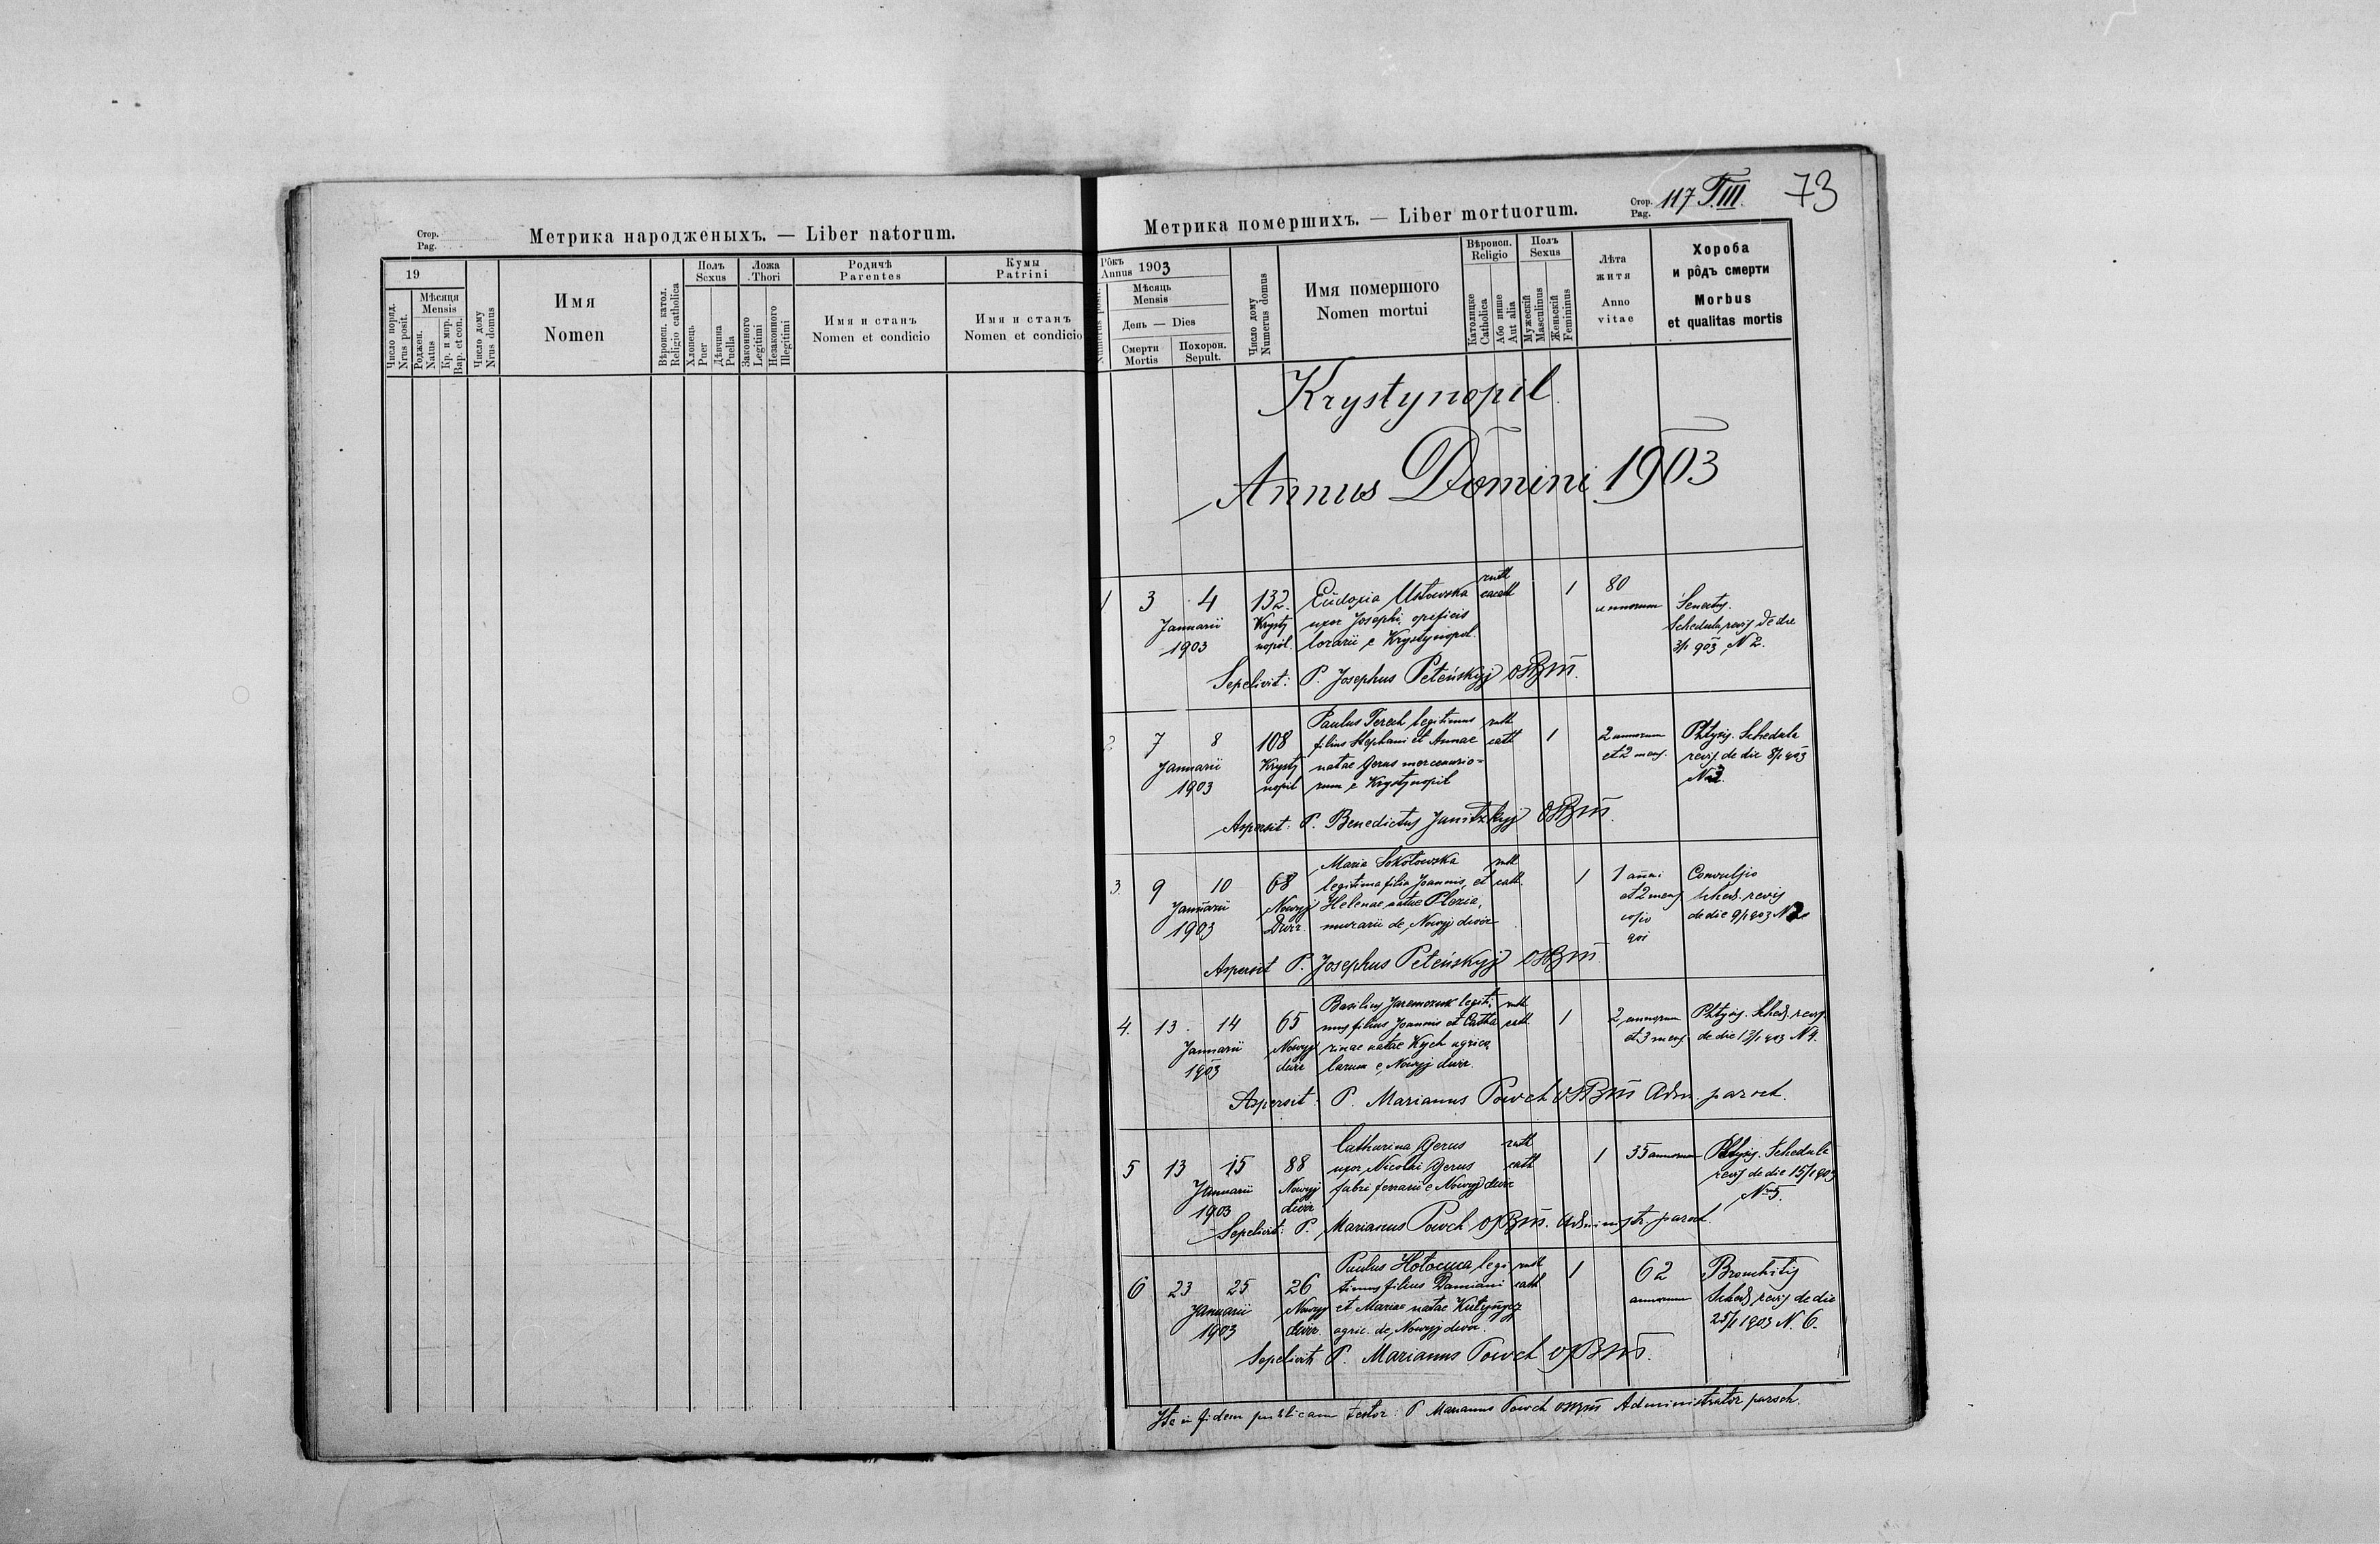 Стор.
Pag.
Метрика народженыхъ. — Liber natorum.
19
Число поряд.
Nrus posit.
Мѣсяця
Mensis
Роджен.
Natus
Кр. и мир.
Bap. et con.
Число дому
Nrus domus
Имя
Nomen
Вѣроисп. катол.
Religio catholica
Полъ
Sexus
Хлопець
Puer
Дѣвчина
Puella
Ложа
Thori
Законного
Legitimi
Незаконного
Illegitimi
Родичѣ
Parentes
Имя и станъ
Nomen et condicio
Кумы
Patrini
Имя и станъ
Nomen et condicio
Метрика помершихъ. — Liber mortuorum.
Стор.
Pag.
117 T.III.
73
Рôкъ
Annus 1903
Мѣсяць
Mensis
День — Dies
Смерти
Mortis
Похорон.
Sepult.
Число дому
Numerus domus
Имя померш​ого
Nomen mortui
Вѣроисп.
Religio
Католицке
Catholica
Або инше
Aut alia
Полъ
Sexus
Мужескій
Masculinus
Женьскій
Femininus
Лѣта
житя
Anno
vitae
Хороба
и рôдъ смерти
Morbus
et qualitas mortis
Krystynopil
Annus Domini 1903
1 3 4 132 Eudoxia Ustowska ruth cath 1 80
Januarii Krysty uxor Josephi opificis annorum Senectus.
1903 nopil. lorarii e Krystynopol. Schedula revis de die
3/1 903 N 2.
Sepelivit: P. Josephus Peteńskyj OSBM.
2 7 8 108 Paulus Terech legitimus ruth 1 2 annorum Phtysis. Schedula
Januarii Krysty filius Stephani et Annae cath et 2 mens. revis. de die 8/1 903
1903 nopil natae Gerus mercenario-
rum e Krystynopil
Aspersit: P. Benedictus OSBM.
3. 9 10 68 Maria Sokołowska ruth 1 1 anni Convulsio
Januarii Nowyj legitima filia Joannis, et cath. et 2 mens sched. revis
1903 Dwir. Helenae natae de die 9/1 903
murarii de Nowyj dwir
Aspersit P. Josephus Peteńskyj OSBM.
4. 13. 14 65 Basilius Jaremczuk legiti- ruth 1 2 annorum Phtysis. Sched. revis.
Januarii Nowyj mus filius Joannis et Catha cath. et 3 mens de die 13/1 903 N 4.
1903 dwir rinae natae Kych agrico
larum e Nowyj dwir.
Aspersit: P. Marianus Powch OSBM Adm. paroch.
5 13 15 88 Catharina Gerus ruth 1 35 annorum Phtysis. Schedula
Januarii Nowyj uxor Nicolai Gerus cath revis de die 15/1 903
1903 dwir fabri ferrarii e Nowyj dwir N 5.
Sepelivit: P. Marianus Powch OSBM. Administr. paroch.
6 23 25 26 Paulus Hołocuca legi ruth 1 62 Bronchitis
Januarii Nowyj timus filius Damiani cath annorum Sched revis de die
1903 dwir. et Mariae natae 25/1 1903 N. 6.
agric. de Nowyj dwir.
Sepelivit P. Marianus Powch OSBM.
Ita in fidem publicam testor: P Marianus Powch OSBM Administrator paroch.